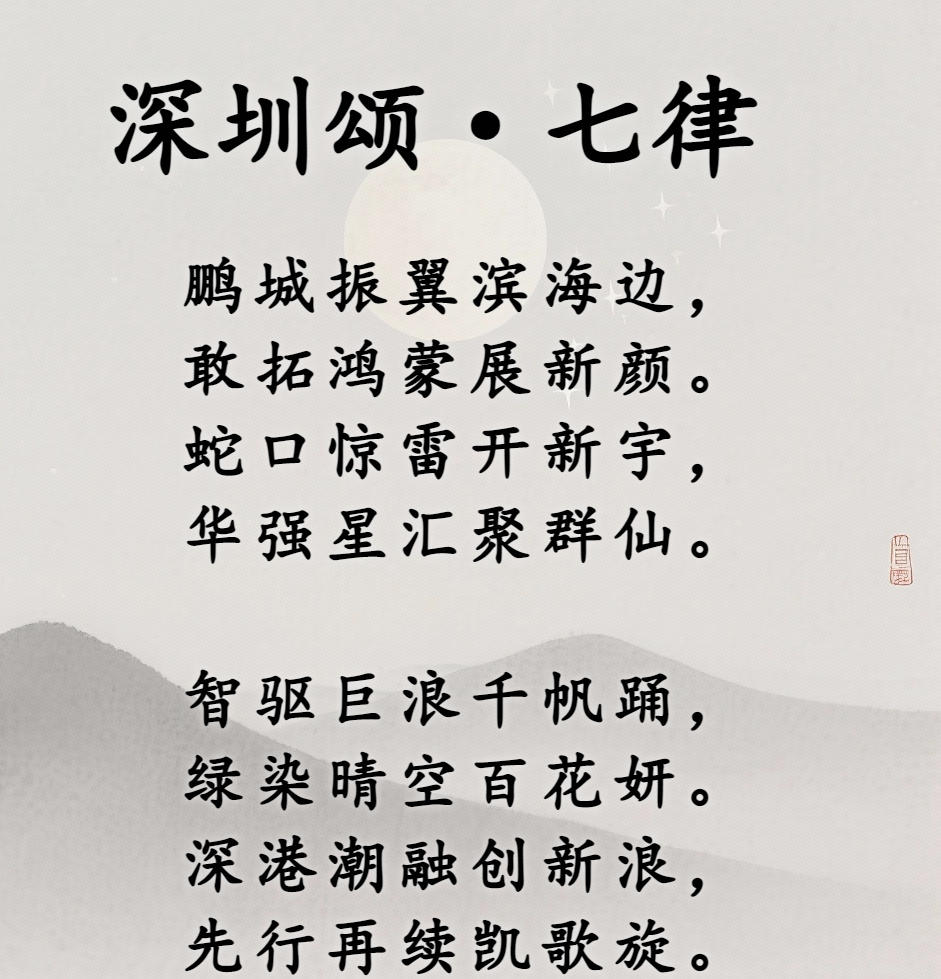 深圳颂·七律
鹏城振翼滨海边，
敢拓鸿蒙展新颜。
蛇口惊雷开新宇，
华强星汇聚群仙。
智驱巨浪千帆踊，
绿染晴空百花妍。
深港潮融创新浪，
先行再续凯歌旋。